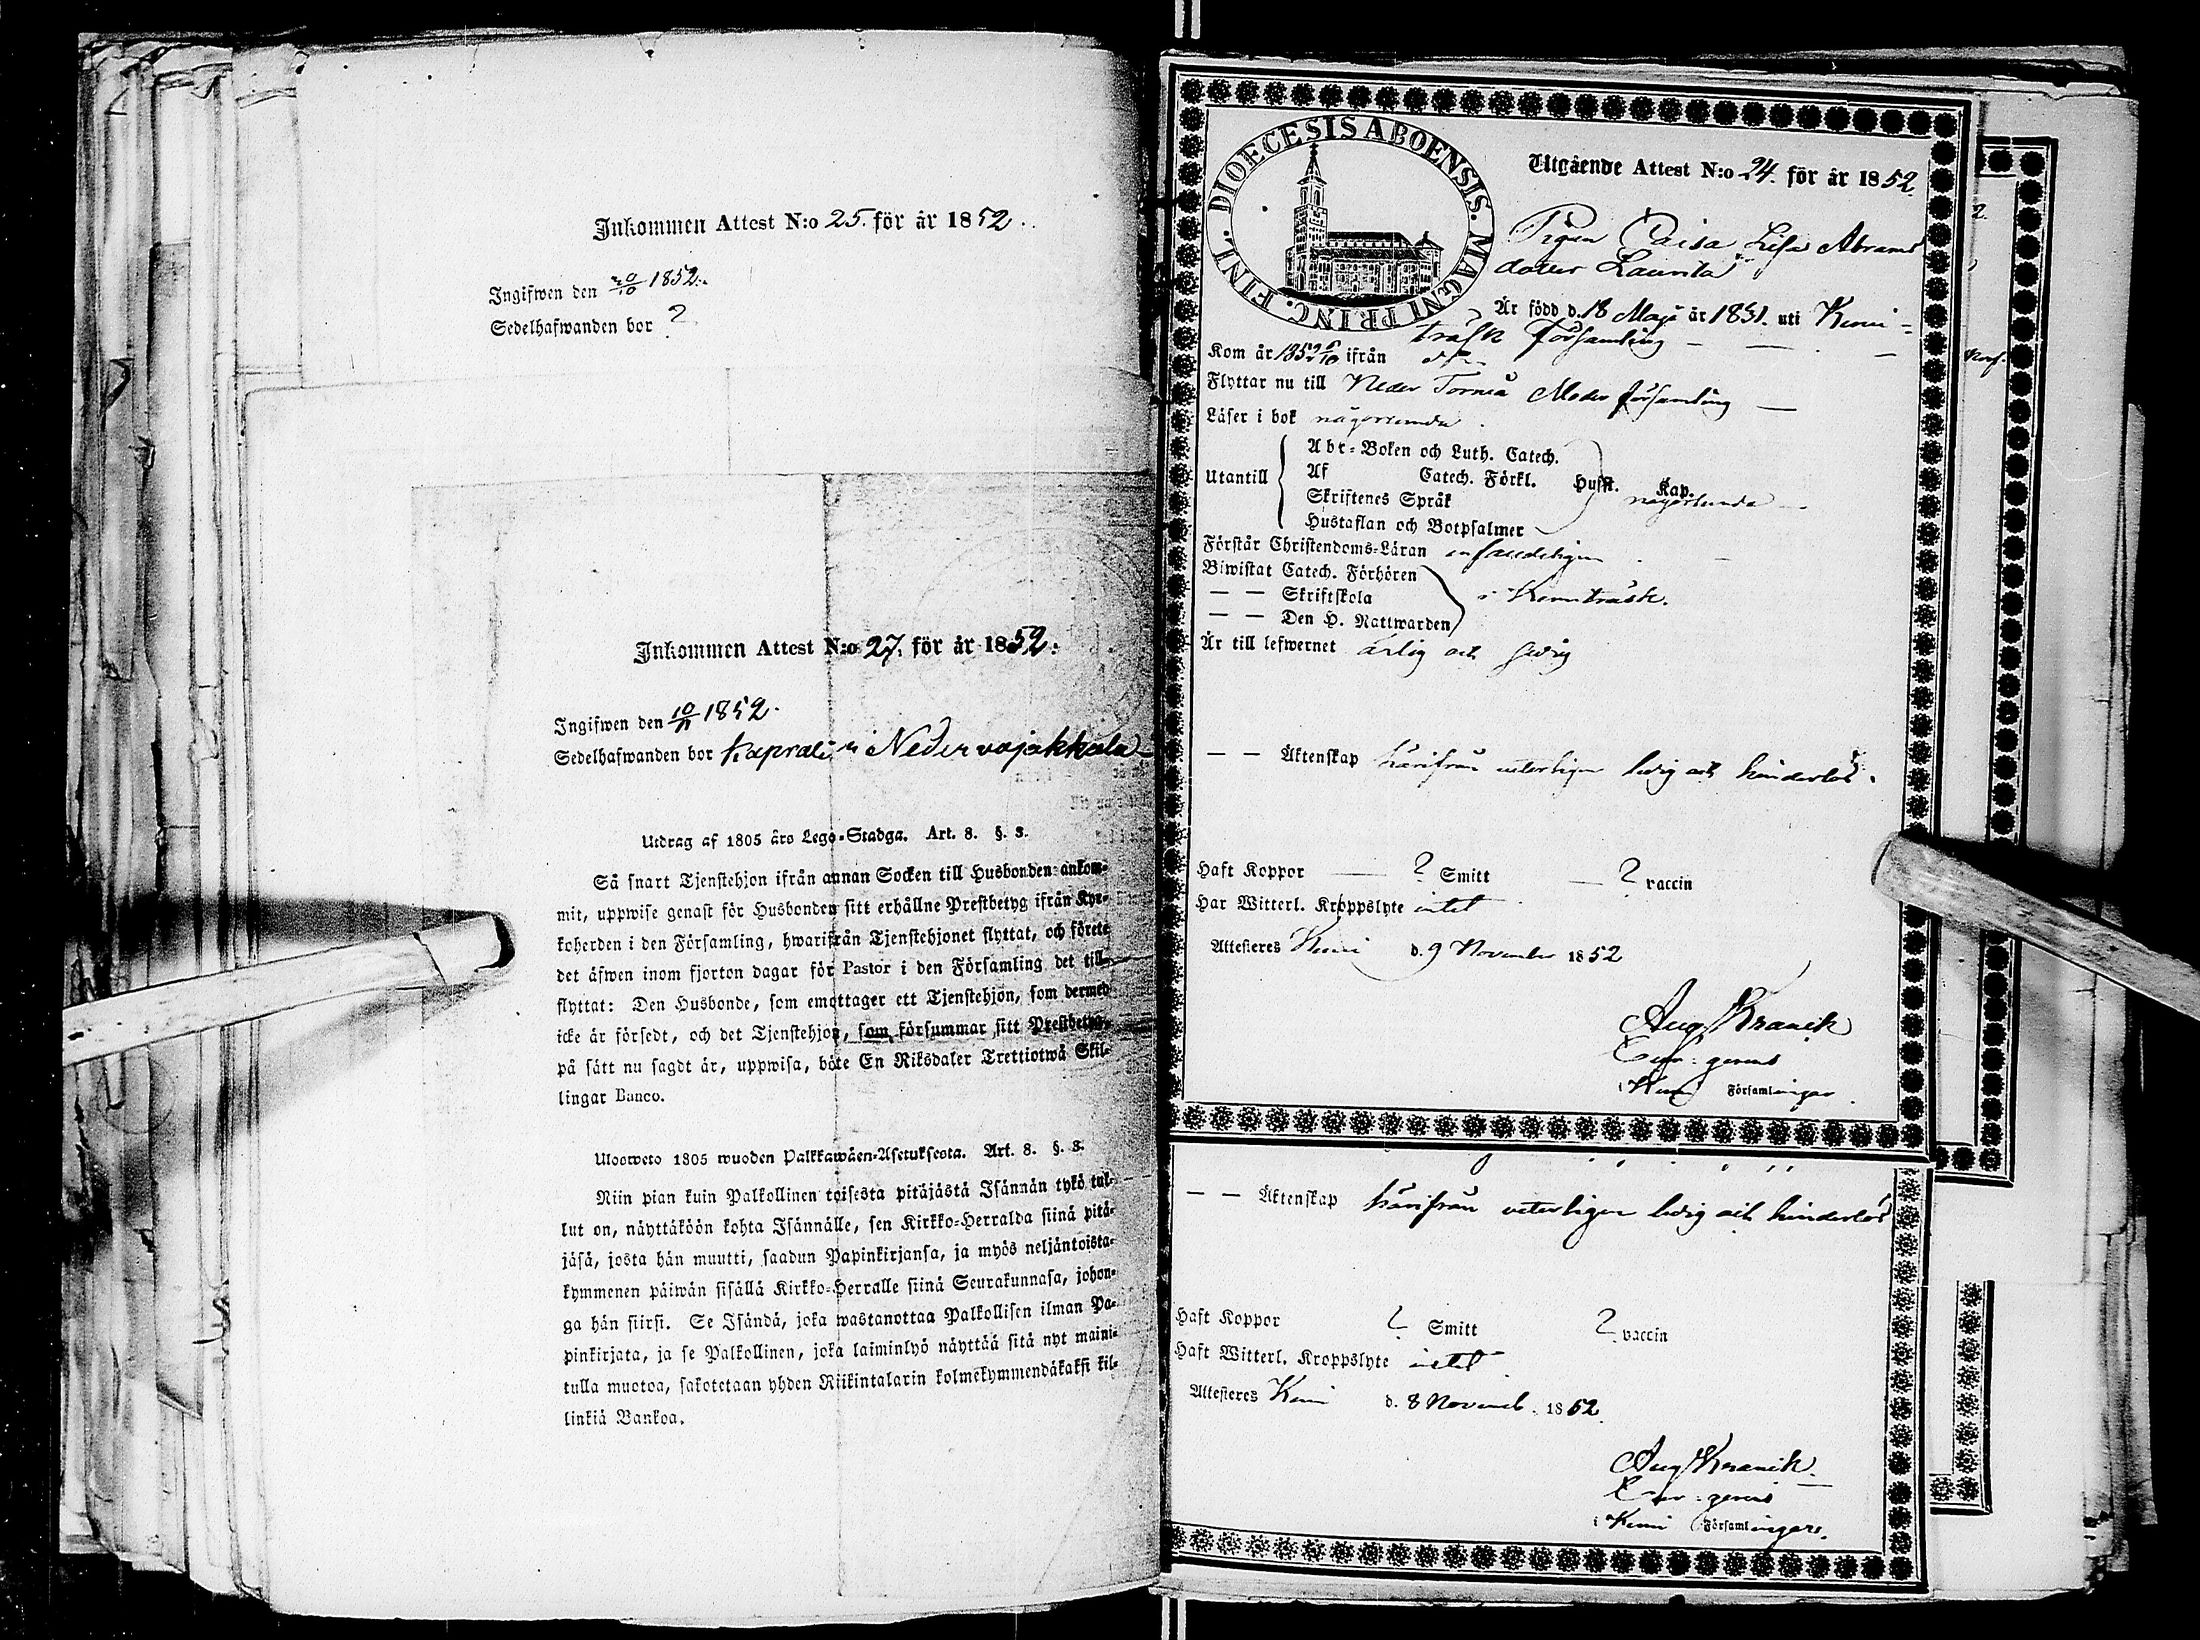 Inkommen Attest N:o 25. för år 1852.
Ingifwen den 20/10 1852.
Sedelhafwanden bor ?
Inkommen Attest N:o 27. för år 1852.
Ingifwen den 10/11 1852.
Sedelhafwanden bor Kaprali i Neder vojakkala
Utdrag af 1805 års Lego-Stadga. Art. 8. §. 3.
Så snart Tjenstehjon ifrån annan Socken till Husbonden ankom-
mit, uppwise genast för Husbonden sitt erhållne Prestbetyg ifrån Kyr-
koherden i den Församling, hwarifrån Tjenstehjonet flyttat, och förete
det äfwen inom fjorton dagar för Pastor i den Församling det till-
flyttat: Den Husbonde, som emottager ett Tjenstehjon, som dermed
icke är försedt, och det Tjenstehjon, som försummar sitt Prestbetyg,
på sätt nu sagdt är, uppwisa, böte En Riksdaler Trettiotwå Skil-
lingar Banco.
Ulosweto 1805 wuoden Palkkawäen-Asetuksesta. Art. 8. §. 3.
Niin pian kuin Palkollinen toisesta pitäjästä Isännän tykö tul-
lut on, näyttäköön kohta Isännälle, sen Kirkko-Herralda siinä pitä-
jäsä, josta hän muutti, saadun Papinkirjansa, ja myös neljäntoista-
kymmenen päiwän sisällä Kirkko-Herralle siinä Seurakunnasa, johon-
ga hän siirsi. Se Isändä, joka wastanottaa Palkollisen ilman Pa-
pinkirjata, ja se Palkollinen, joka laiminlyö näyttää sitä nyt maini-
tulla muotoa, sakotetaan yhden Riikintalarin kolmekymmendäkaksi kil-
linkiä Bankoa.
FINL. DIOECESIS ABOENSIS. MAGNI PRINC.
Utgående Attest N:o 24. för år 1852.
Pigan Caisa Lisa Abrams
dotter Laurila
Är född d. 18 Maji år 1831. uti Kemi-
träsk Församling
Kom år 1852 ifrån
Flyttar nu till Neder Torneå Moder församling
Läser i bok någorlunda
Utantill
Abc-Boken och Luth. Catech.
Af Catech. Förkl. Husst. Kap.
Skriftenes Språk någorlunda
Hustaflan och Botpsalmer
Förstår Christendoms-Läran enfaldeligen
Biwistat Catech. Förhören
— — Skriftskola i Kemiträsk.
— — Den H. Nattwarden
Är till lefwernet ärlig och sedig
— — Äktenskap härifrån veterligen ledig och hinderlös.
Haft Koppor — ? Smitt — ? vaccin
Har Witterl. Kroppslyte intet
Attesteres Kemi d. 9 November 1852
Aug Kranck
i Kemi Församlingar
— — Äktenskap härifrån veterligen ledig och hinderlös
Haft Koppor ? Smitt ? vaccin
Haft Witterl. Kroppslyte intet
Attesteres Kemi d. 8 Novemb. 1852.
Aug Kranck.
i Kemi Församlingar.